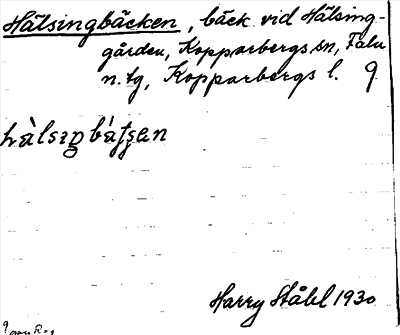 Hälsingbäcken, bäck vid Hälsing-
gården, Kopparbergs sn, Falu
n. tg, Kopparbergs l. 9
hàlsıŋbátʂen
Harry Ståhl 1930